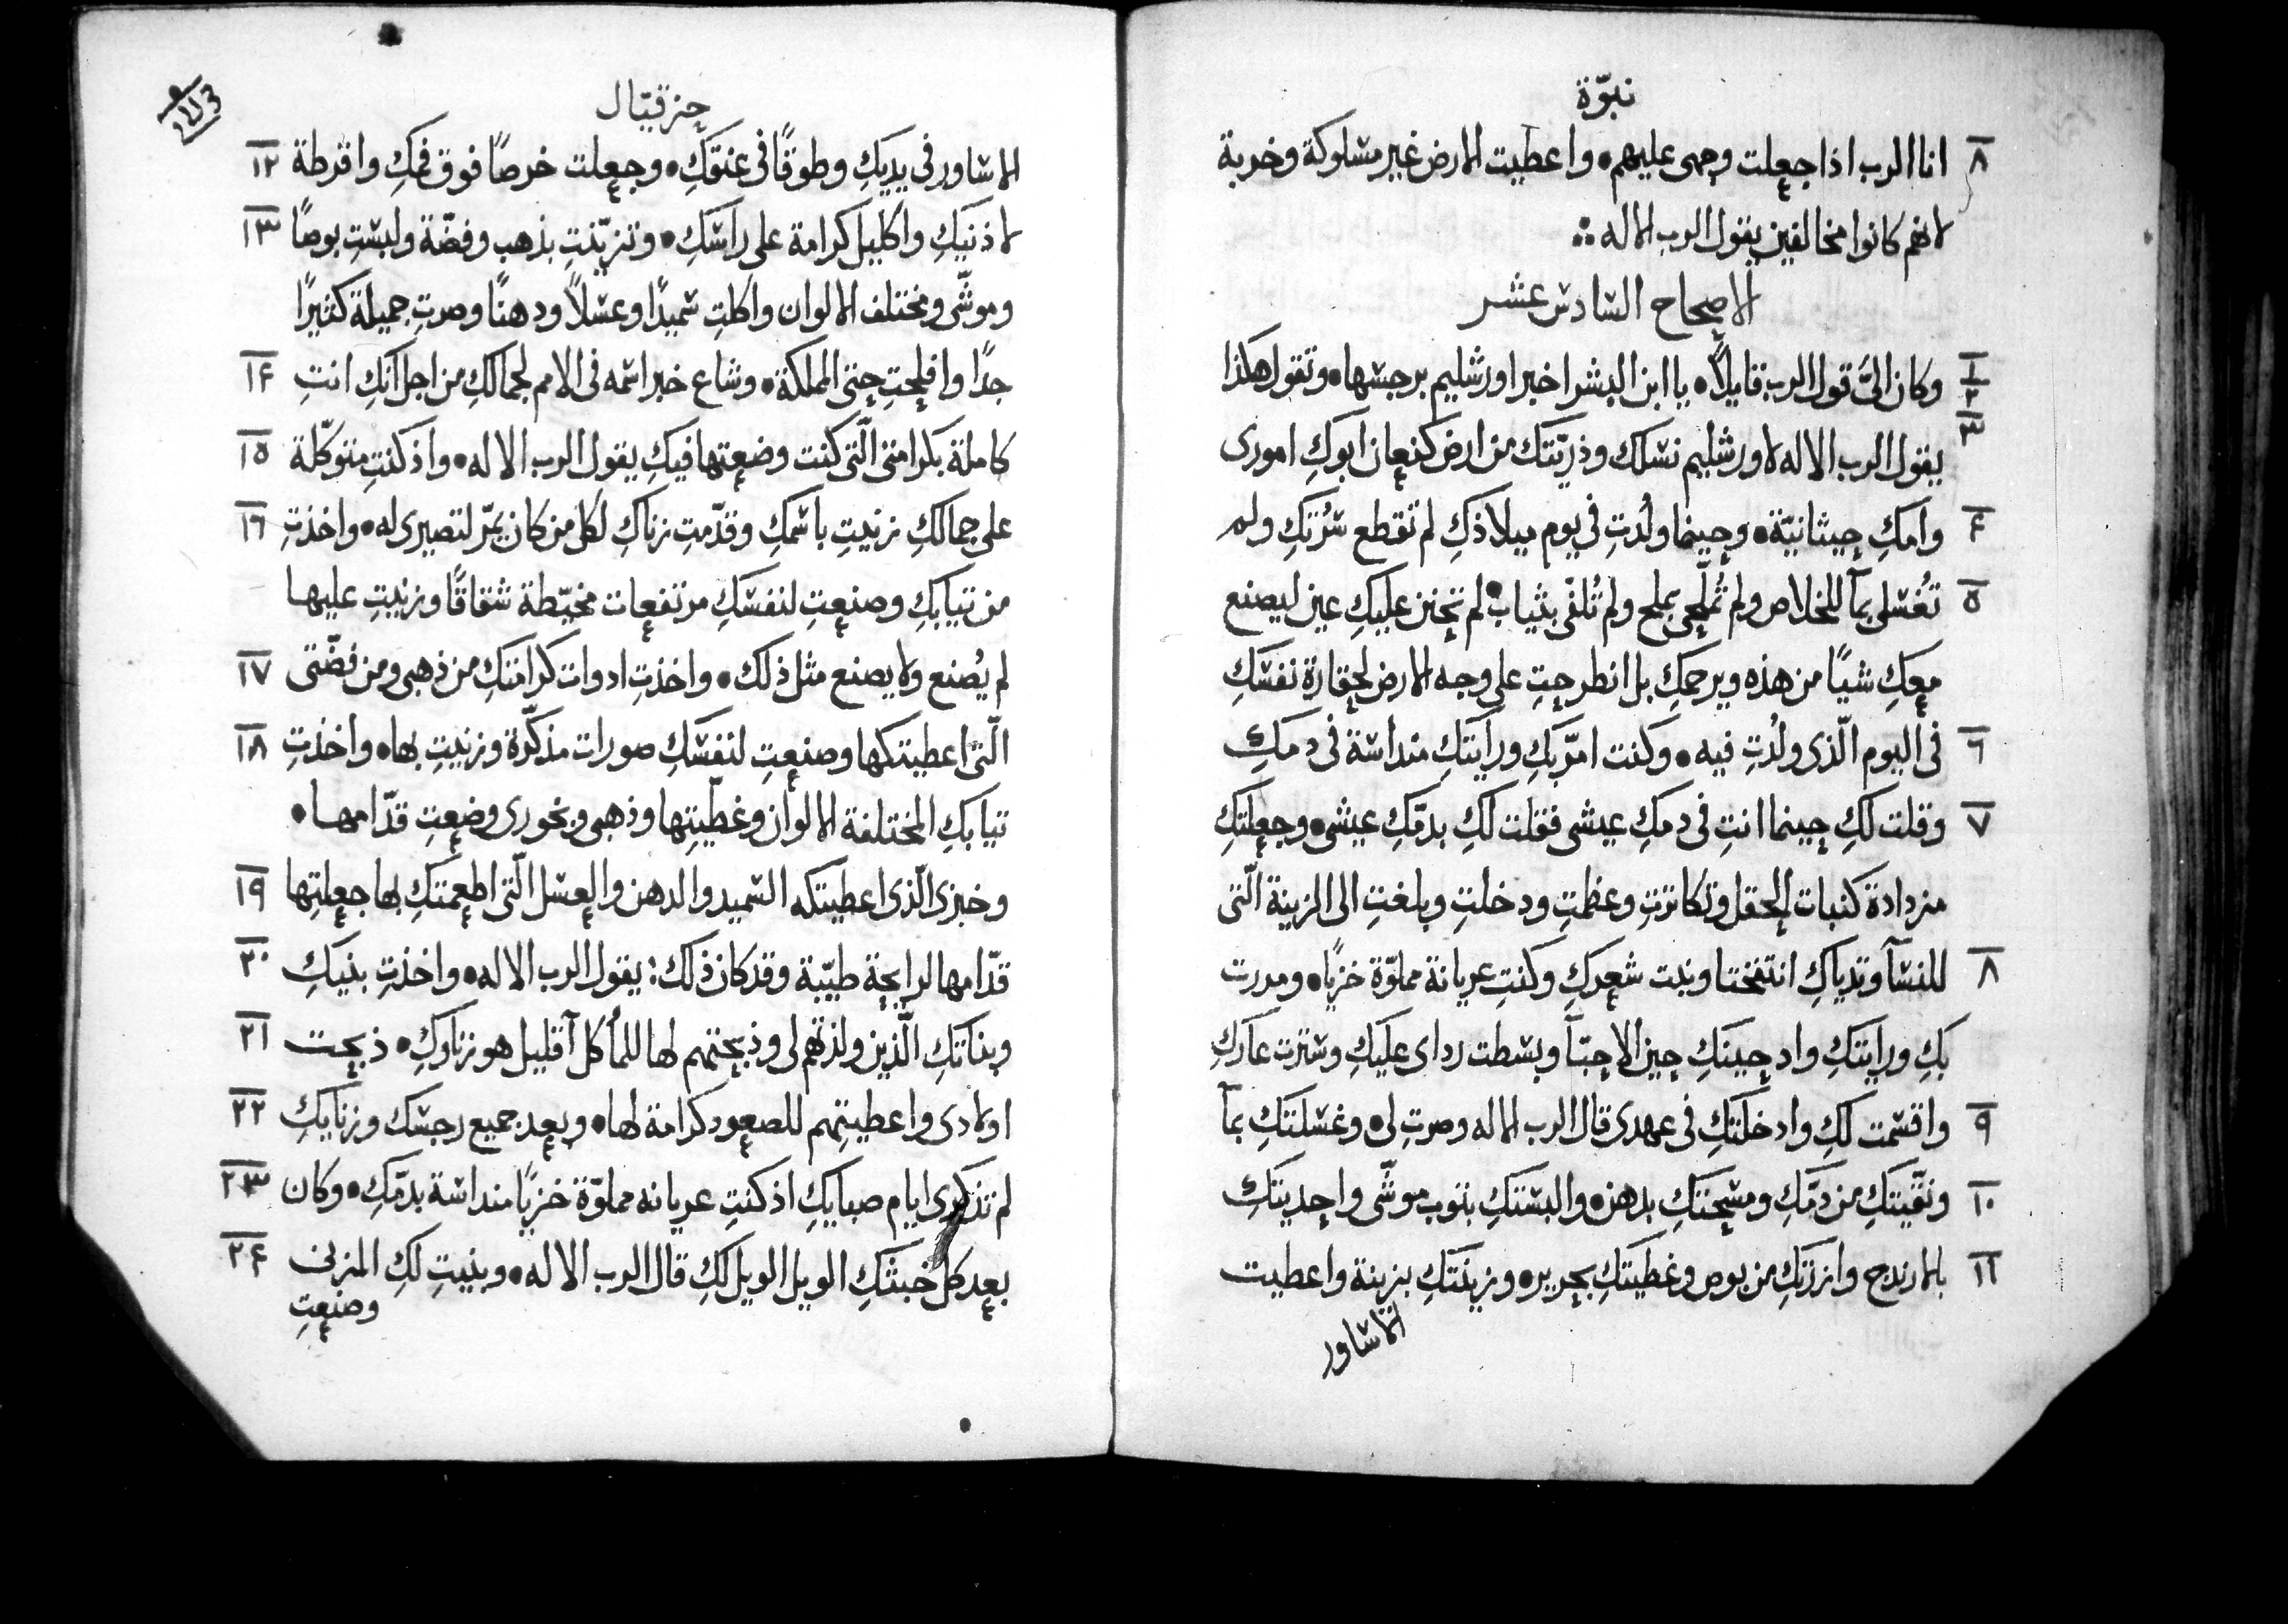 نبوّة
٨ انا الرب اذا جعلت وجهى عليهم • واعطيت الارض غير مسلوكة وخربة
لانهم كانوا مخالفين يقول الرب الاله ∴
الاصحاح السادس عشر
١ ٢ وكان الىَّ قول الرب قايلًا • يا ابن البشر اخبر اورشليم برجسها • وتقول هكذا
٣ يقول الرب الاله لاورشليم نسلك وذريّتك من ارض كنعان ابوكِ امورى
٤ وامكِ حيثانيّة • وحينما ولُدتِ فى يوم ميلادكِ لم تقطع سُرّتكِ ولم
٥ تُغسلى بمآ للخلاص ولم تُملّحى بملح ولم تُلفّى بثياب • لم تحنن عليكِ عين ليصنع
معكِ شيًا من هذه ويرحمكِ بل انطرحتِ على وجه الارض لحقارة نفسَكِ
٦ فى اليوم الّذى ولُدتِ فيه • وكنت امرّ بكِ ورايتكِ منداسة فى دمكِ
٧ وقلت لكِ حينما انتِ فى دمكِ عيشى فقلت لكِ بدمّكِ عيشى • وجعلتكِ
مزدادة كنبات الحقل وتكاثرتِ وعظمتِ ودخلتِ وبلغتِ الى الزينة الّتى
٨ للنسآ وثدياكِ انتفختا ونبت شعركِ وكنتِ عريانة مملوّة خزيًا • ومررت
بكِ ورايتكِ واد حينكِ حين الاحبّآ وبسطت رداى عليكِ وسترت عاركِ
٩ واقسمت لكِ وادخلتكِ فى عهدى قال الرب الاله وصرتِ لى • وغسلتكِ بمآ
١٠ ونقّيتكِ من دمّكِ ومسحتكِ بدهن • والبستكِ بثوب موشّى واحديتكِ
١١ بالارندج وازرتكِ من بوص وغطيتكِ بحرير • وزينتكِ بزينة واعطيت
الاساور
حزقيال
١٢ الاساور فى يديكِ وطوقًا فى عنقكِ • وجعلت خرصًا فوق فمكِ واقرطة
١٣ لاذنيكِ واكليل كرامة على راسكِ • وتزيّنتِ بذهب وفضّة ولبستِ بوصًا
وموشّى ومختلف الالوان واكلتِ سميدًا وعسلًا ودهنًا وصرتِ جميلة كثيرًا
١٤ جدًا وافلحتِ حتى المملكة • وشاع خبر اسمه فى الامم لجمالكِ من اجل انّكِ انتِ
١٥ كاملة بكرامتى الّتى كنت وضعتها فيكِ يقول الرب الاله • واذ كنتِ متوكّلة
١٦ على جمالكِ زنيتِ باسمكِ وقدّمتِ زناكِ لكل من كان يمرّ لتصيرى له • واخذتِ
من ثيابكِ وصنعتِ لنفسكِ مرتفعات مخيّطة شقاقًا وزنيتِ عليها
١٧ لم يُصنع ولا يصنع مثل ذلك • واخذتِ ادوات كرامتكِ من ذهبى ومن فضّتى
١٨ الّتى اعطيتكها وصنعتِ لنفسَكِ صورات مذكّرة وزنيتِ بها • واخذتِ
ثيابكِ المختلفة الالوان وغطّيتِها وذهبى وبخورى وضعتِ قدّامها •
١٩ وخبزى الّذى اعطيتكه السميد والدهن والعسل الّتى اطعمتكِ بها جعلتِها
٢٠ قدّامها لرايحة طيّبة وقد كان ذلك : يقول الرب الاله • واخذتِ بنيكِ
٢١ وبناتكِ الّذين ولدتهم لى وذبحتهم لها للمأكل آقليل هو زناوكِ • ذبحت
٢٢ اولادى واعطيتِهم للصعود كرامة لها • وبعد جميع رجسك وزنايكِ
٢٣ لم تذكرى ايام صبايكِ اذ كنتِ عريانه مملوّة خزيًا منداسة بدمّكِ • وكان
٢٤ بعد كل خبثكِ الويل الويل لكِ قال الرب الاله • وبنيتِ لكِ المزنى
وصنعتِ